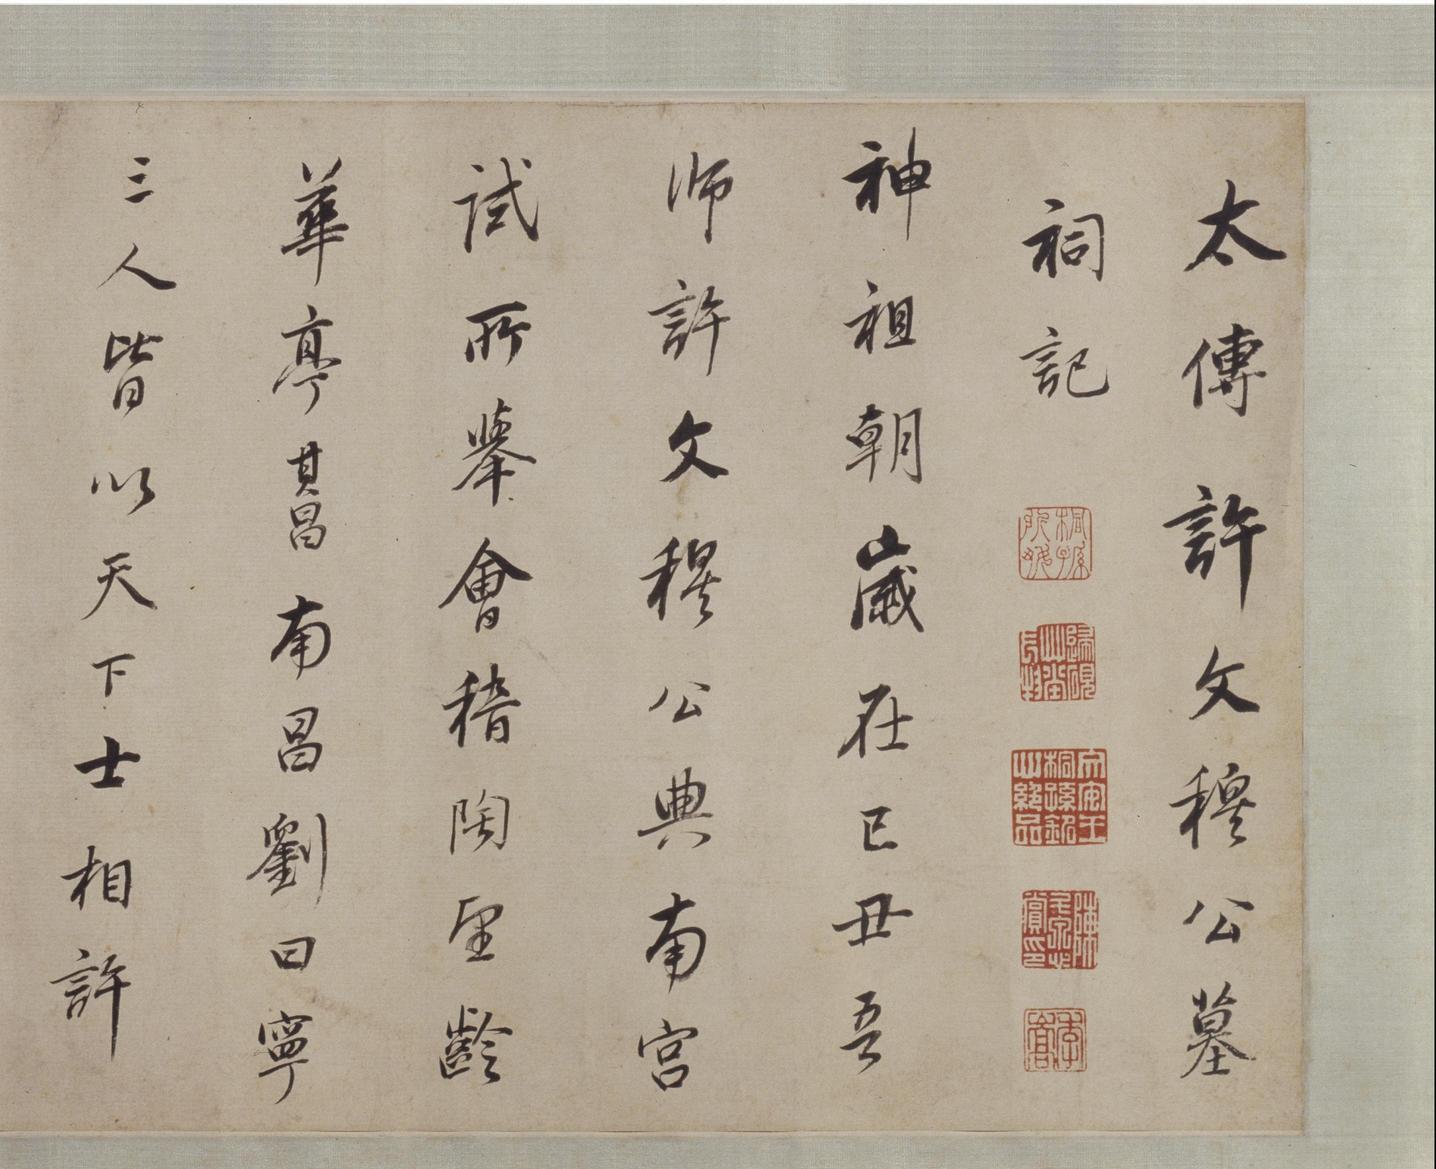 太傅許文穆公墓
祠記
神祖朝歲在己丑吾
師許文穆公典南宮
試所舉會稽陶望齡
華亭其昌南昌劉曰寧
三人皆以天下士相許